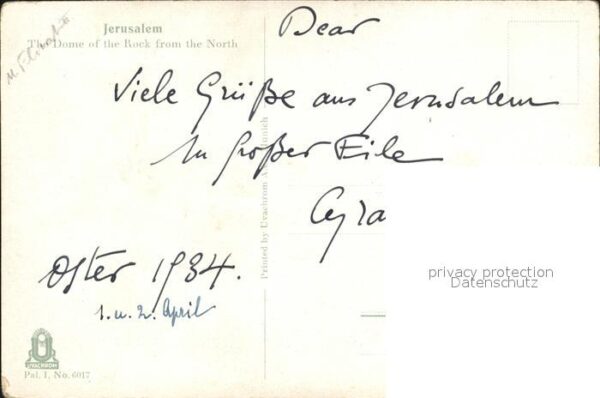 Jerusalem
The Dome of the Rock from the North
Dear
Viele Grüße aus Jerusalem
In großer Eile
Oster 1934.
1. u. 2. April
Printed by Uvachrom A. Munich
privacy protection
Datenschutz
UVACHROM
Pal. I, No. 6017